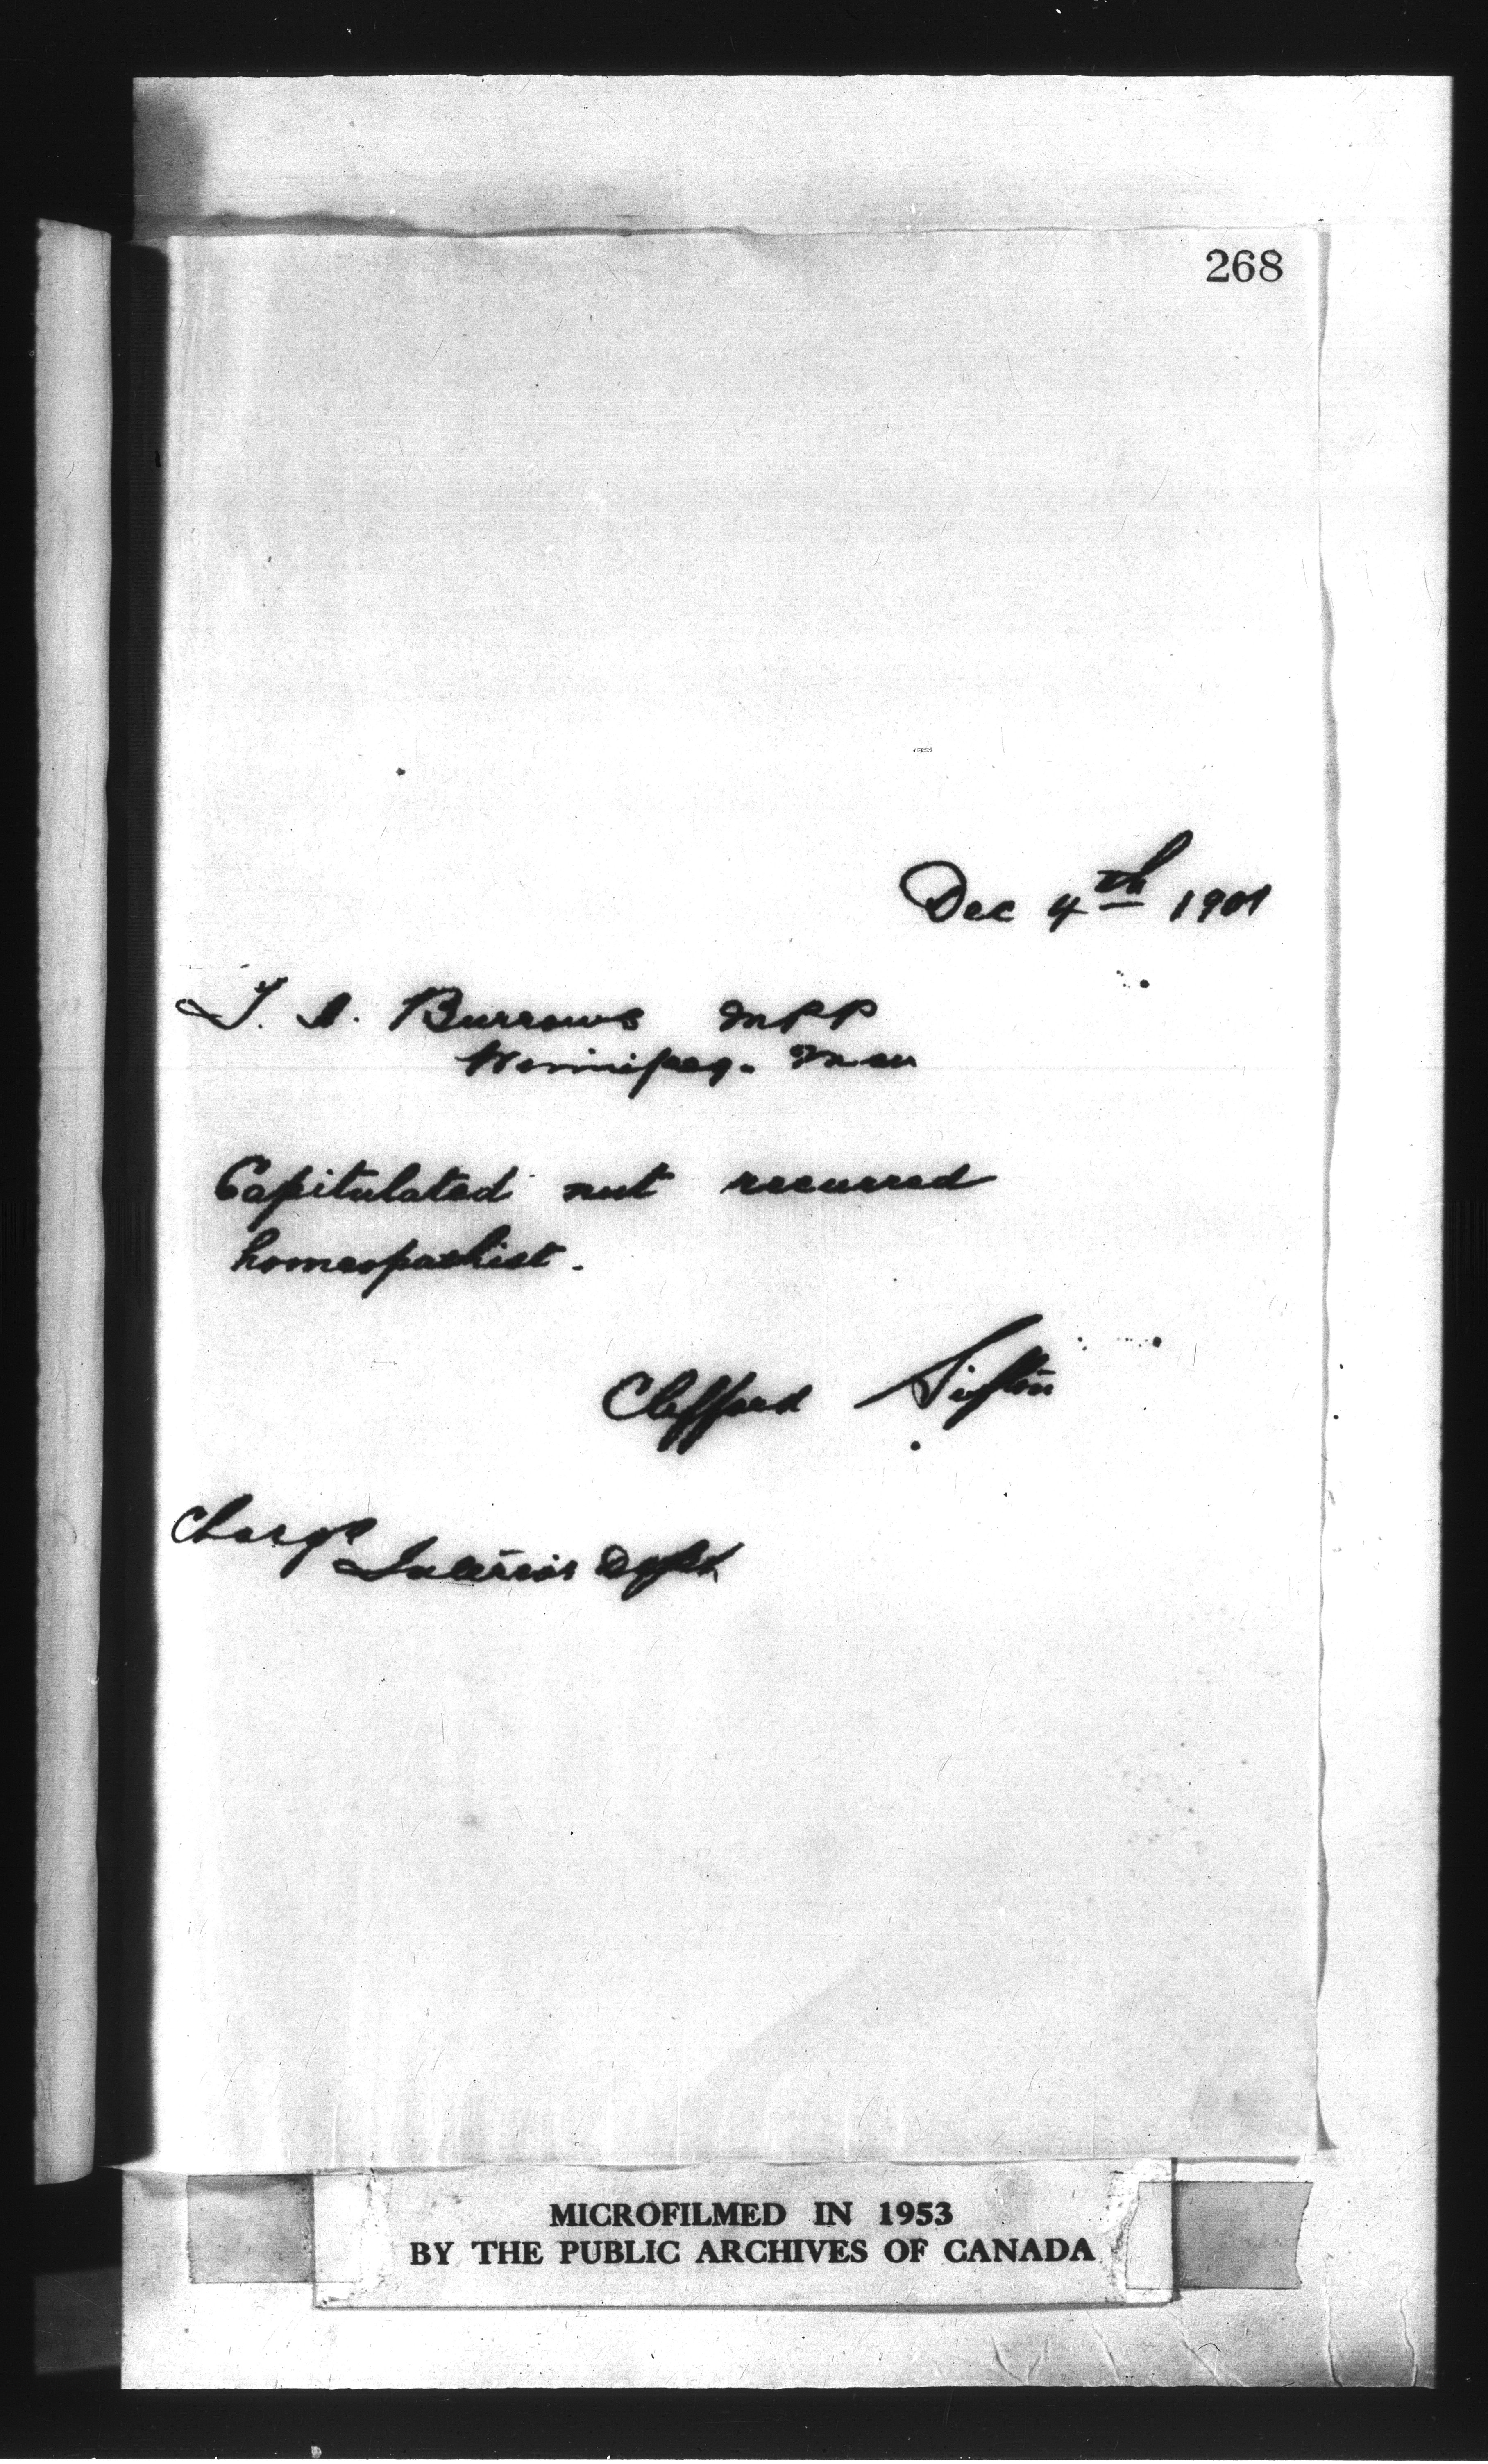 268
Dec 4th 1901
T. A. Burrows MPP
Winnipeg. Man
Capitulated not recurred
homeopathist.
Clifford Sifton
Charge
Interior Dept
MICROFILMED IN 1953
BY THE PUBLIC ARCHIVES OF CANADA